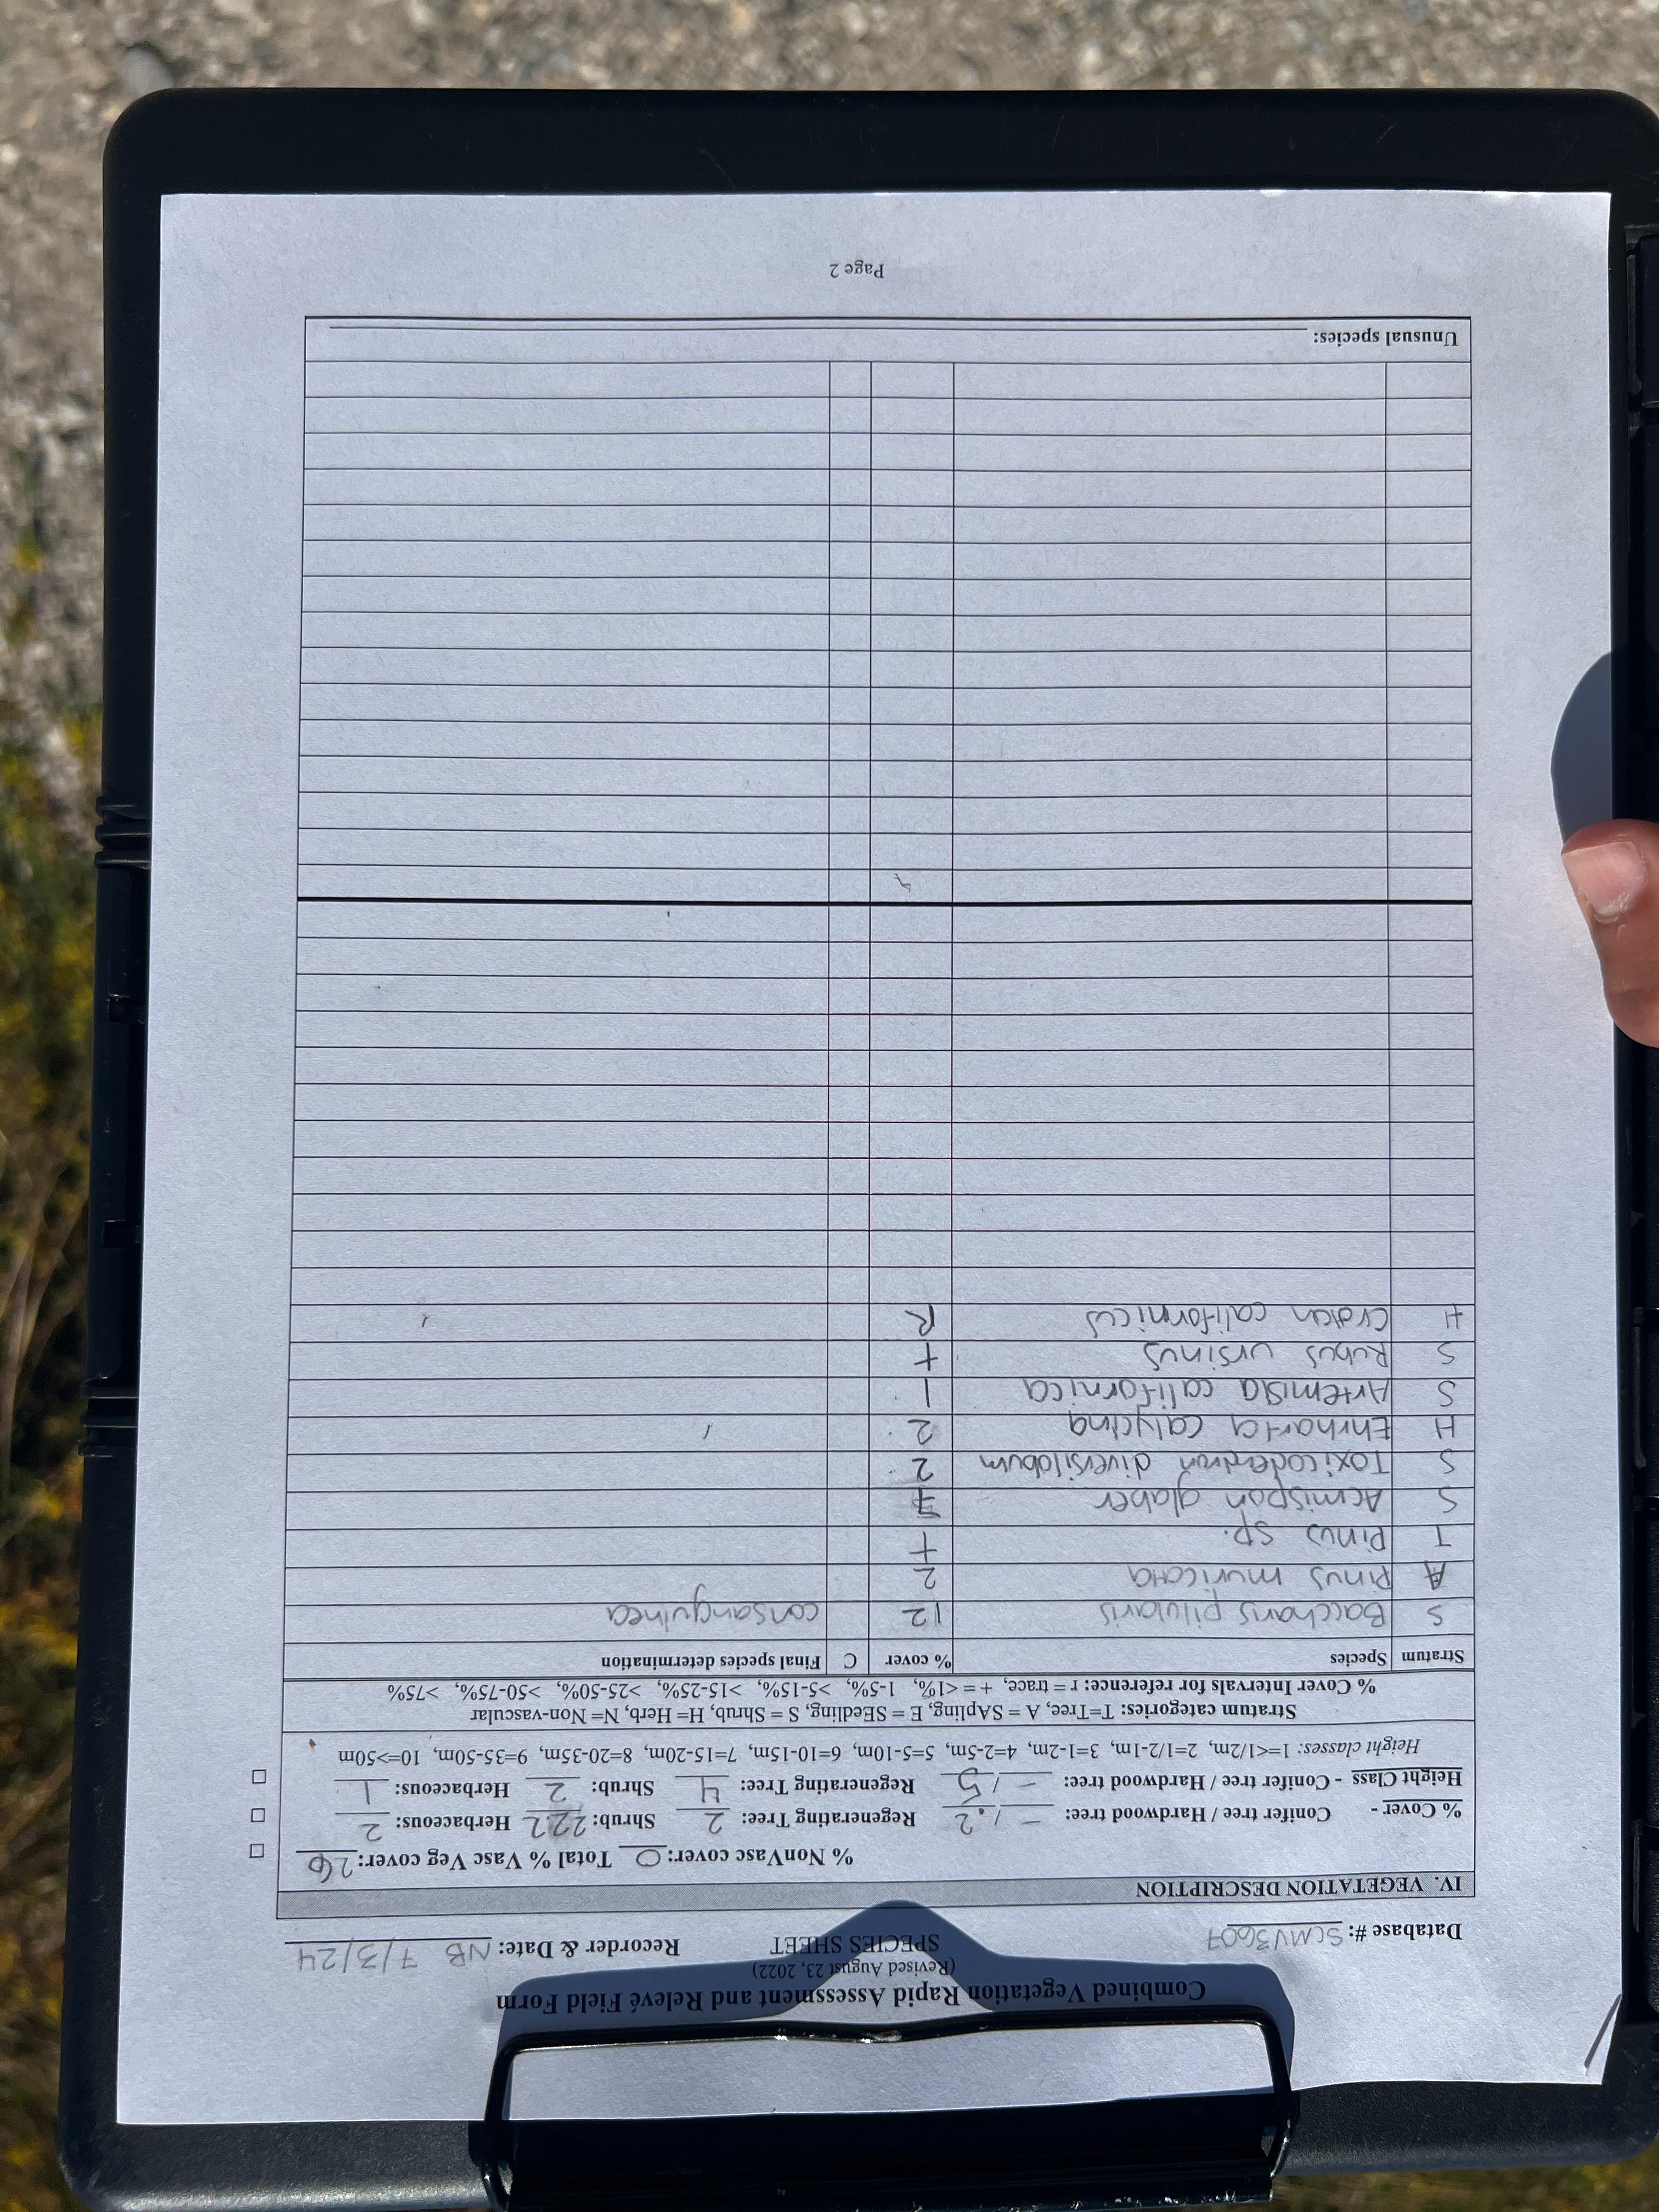 Combined Vegetation Rapid Assessment and Relevé Field Form
(Revised August 23, 2022)
SPECIES SHEET
Database #: SCMV3607 Recorder & Date: NB 7/3/24
IV. VEGETATION DESCRIPTION
% NonVasc cover: 0 Total % Vasc Veg cover: 26
% Cover - Conifer tree / Hardwood tree: – / .2 Regenerating Tree: 2 Shrub: 222 Herbaceous: 2
Height Class - Conifer tree / Hardwood tree: – / 5 Regenerating Tree: 4 Shrub: 2 Herbaceous: 1
Height classes: 1=<1/2m, 2=1/2-1m, 3=1-2m, 4=2-5m, 5=5-10m, 6=10-15m, 7=15-20m, 8=20-35m, 9=35-50m, 10=>50m
Stratum categories: T=Tree, A = SApling, E = SEedling, S = Shrub, H= Herb, N= Non-vascular
% Cover Intervals for reference: r = trace, + = <1%, 1-5%, >5-15%, >15-25%, >25-50%, >50-75%, >75%
Stratum Species % cover C Final species determination
S Baccharis pilularis 12 consanguinea
A Pinus muricata 2
T Pinus sp. +
S Acmispon glaber 7
S Toxicodendron diversilobum 2
H Ehrharta calycina 2
S Artemisia californica 1
S Rubus ursinus +
H Croton californicus R
Unusual species:
Page 2